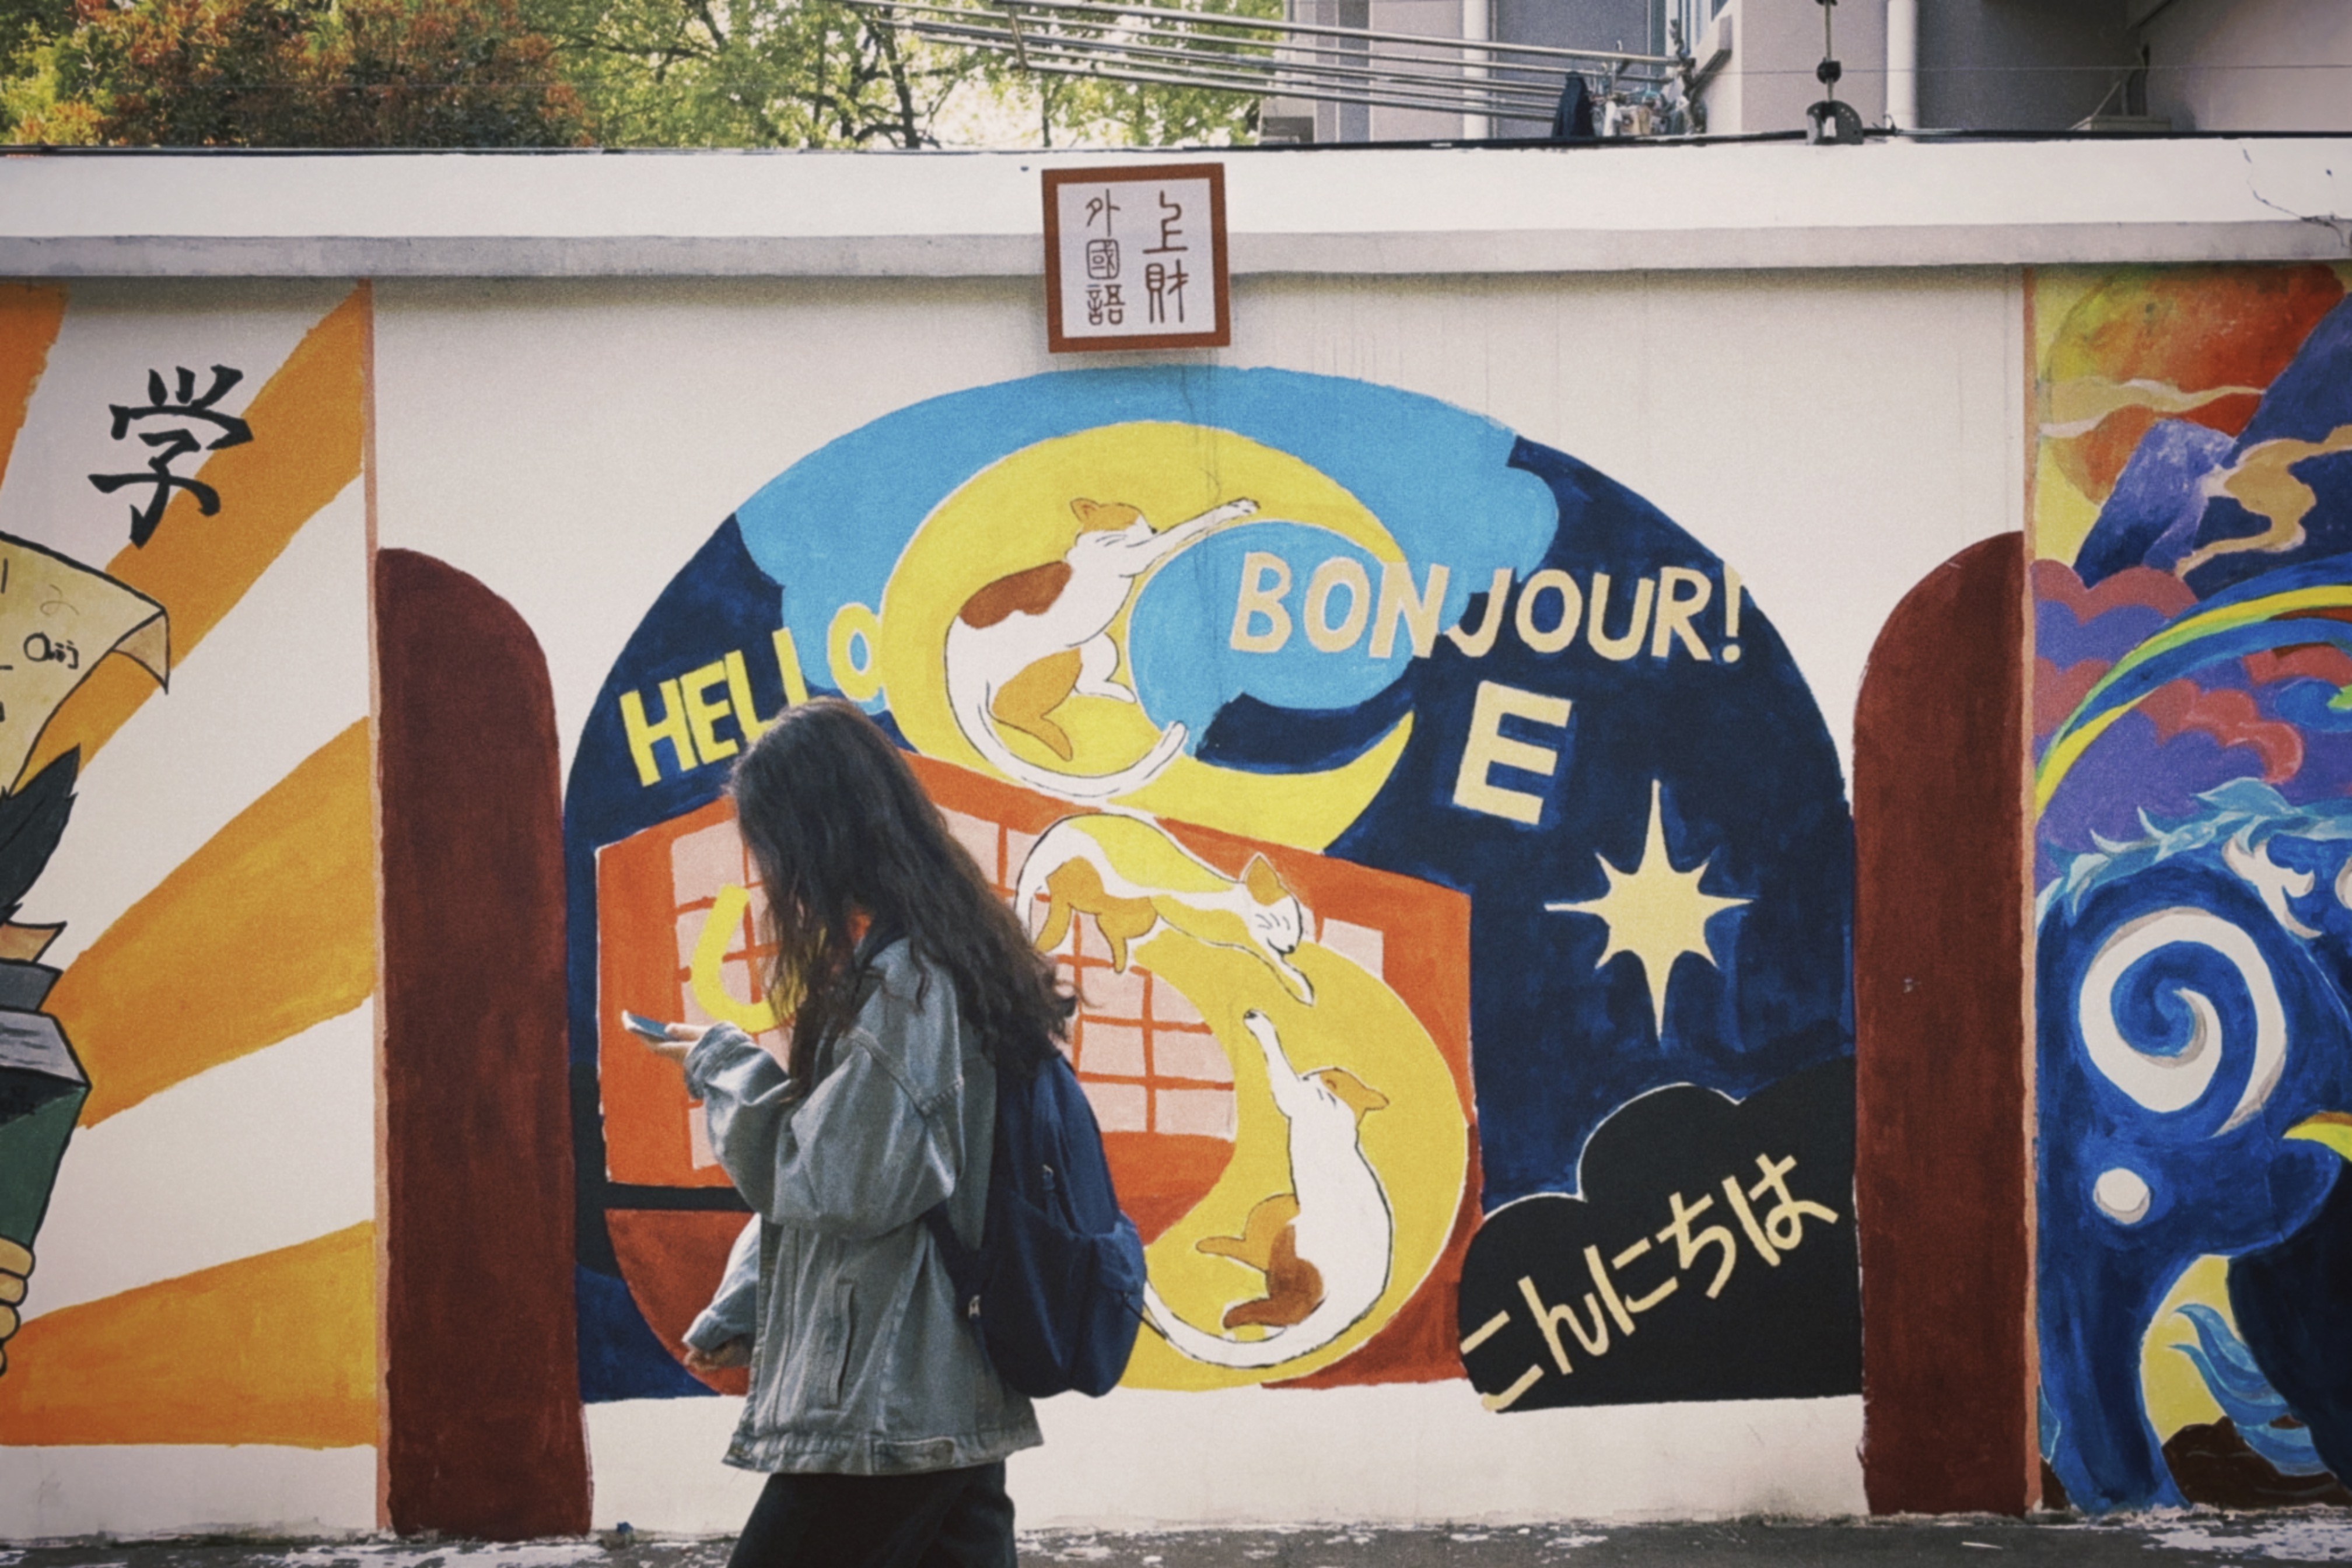 上財
外國語
学
HELLO
BONJOUR!
E
こんにちは